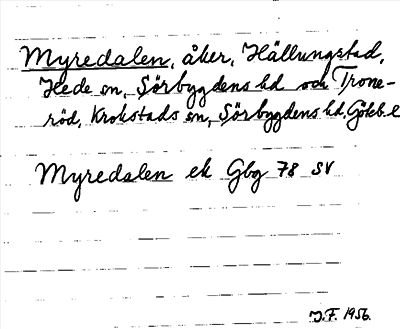 Myredalen, åker, Hällungstad,
Hede sn, Sörbygdens hd och Trone-
röd, Krokstads sn, Sörbygdens hd, Göteb. l
Myredalen ek Gbg 78 SV
J.F. 1956.